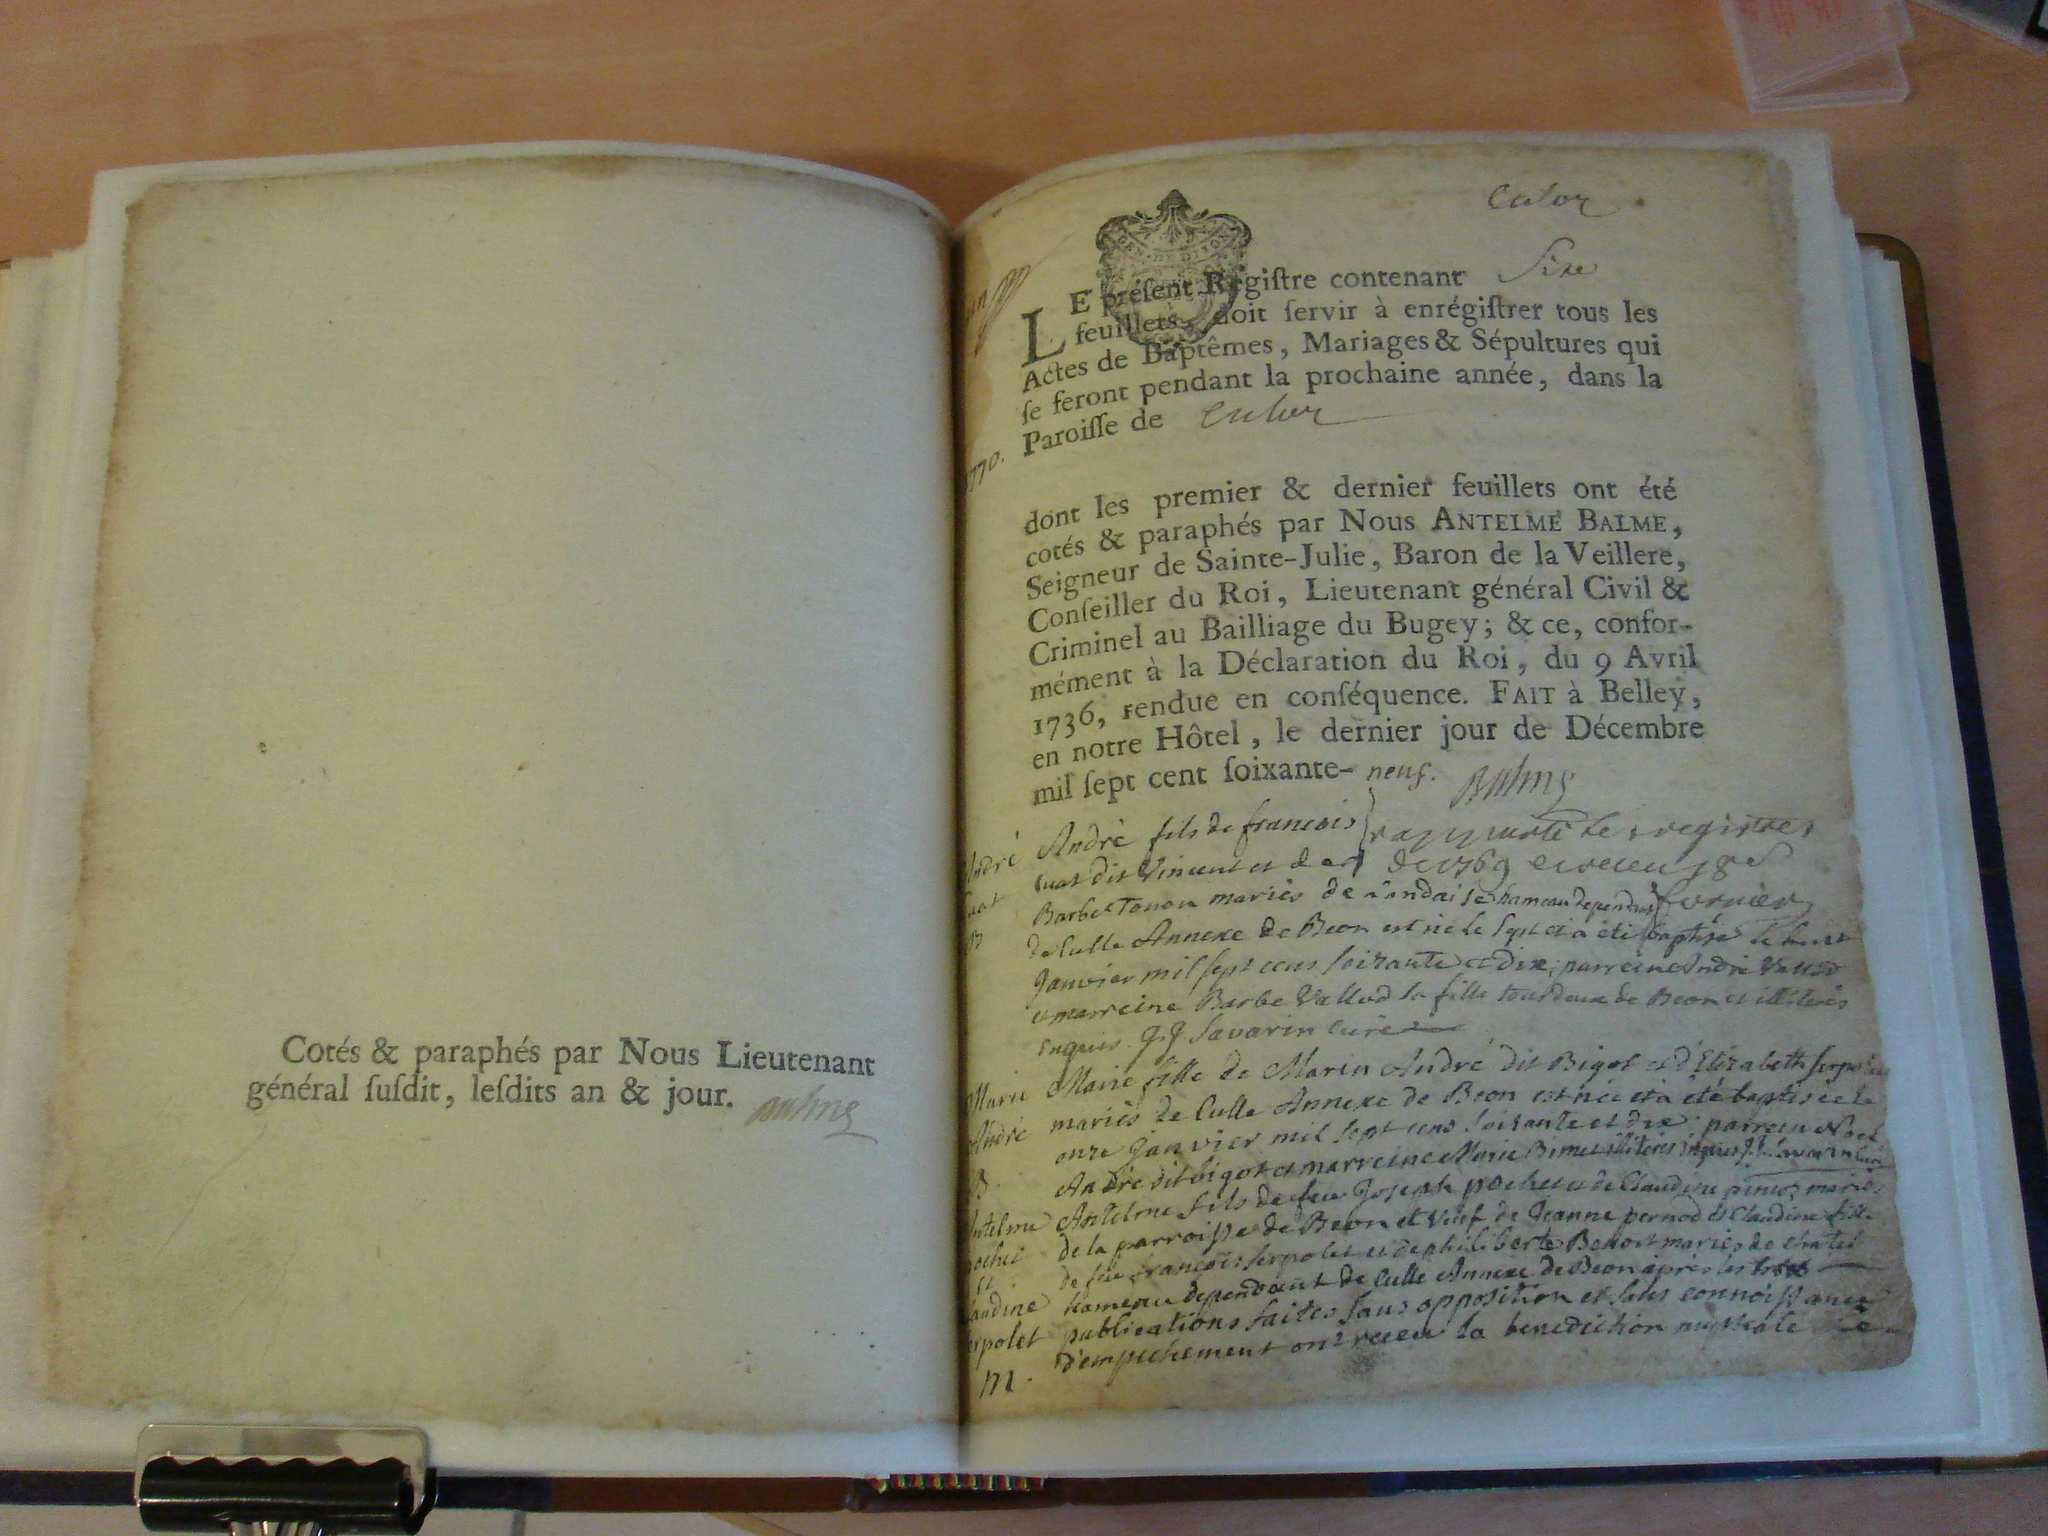 Cotés & paraphés par Nous Lieutenant
général ſuſdit, leſdits an & jour. Balme
Culoz
GEN. DE DIJON
LE préſent Regiſtre contenant Six
feuillets, doit ſervir à enrégiſtrer tous les
Actes de Baptêmes, Mariages & Sépultures qui
ſe feront pendant la prochaine année, dans la
Paroiſſe de Culoz
1770.
dont les premier & dernier feuillets ont été
cotés & paraphés par Nous ANTELME BALME,
Seigneur de Sainte-Julie, Baron de la Veillere,
Conſeiller du Roi, Lieutenant général Civil &
Criminel au Bailliage du Bugey; & ce, confor-
mément à la Déclaration du Roi, du 9 Avril
1736, rendue en conſéquence. FAIT à Belley,
en notre Hôtel, le dernier jour de Décembre
mil ſept cent ſoixante- neuf. Balme
André
B
André fils de francois
dit Vincent et de
Barbe mariès de hameau dependant
de Culle Annexe de Beon est nè le sept et a eté baptisé le huit
Janvier mil sept cens soixante et dix; parrein André Vallod
et marreine Barbe Vallod sa fille tous deux de Beon et illiterès
enquis. J.J. Savarin curé
Marie
André
B.
Marie fille de Marin André dit Bigot et d'Elizabeth serpolet
mariès de Culle Annexe de Beon est née et à été baptiseè le
onze Janvier mil sept cens soixante et dix; parrein Noel
André dit bigot et marreine Marie illiterès enquis J.J. Savarin curé
Antelme
pochet
et
Claudine
serpolet
M.
Antelme fils de feu Joseph pochet et de Claudine mariès
de la parroisse de Beon et veuf de Jeanne pernod et Claudine fille
de feu francois serpolet et de philiberte Benoit mariès de chatel
hameau dependant de Culle Annexe de Beon après les trois
publications faites sans opposition et sans connoissance
d'empechement ont receu la benediction nuptiale